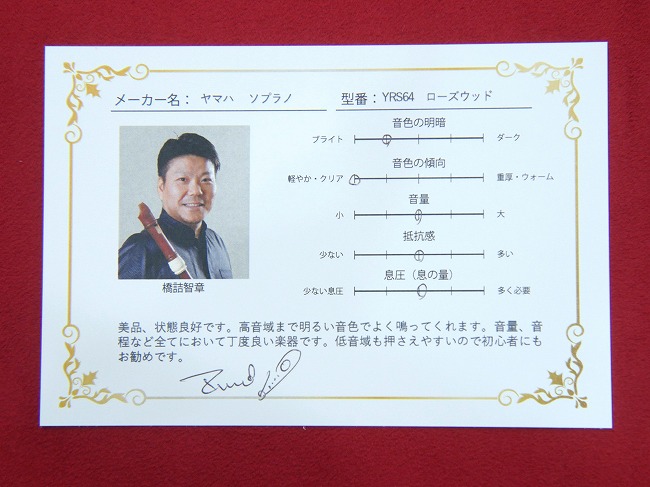 メーカー名： ヤマハ　ソプラノ
型番： YRS64　ローズウッド
音色の明暗
ブライト　ダーク
音色の傾向
軽やか・クリア　重厚・ウォーム
音量
小　大
抵抗感
少ない　多い
息圧（息の量）
少ない息圧　多く必要
橋詰智章
美品、状態良好です。高音域まで明るい音色でよく鳴ってくれます。音量、音
程など全てにおいて丁度良い楽器です。低音域も押さえやすいので初心者にも
お勧めです。